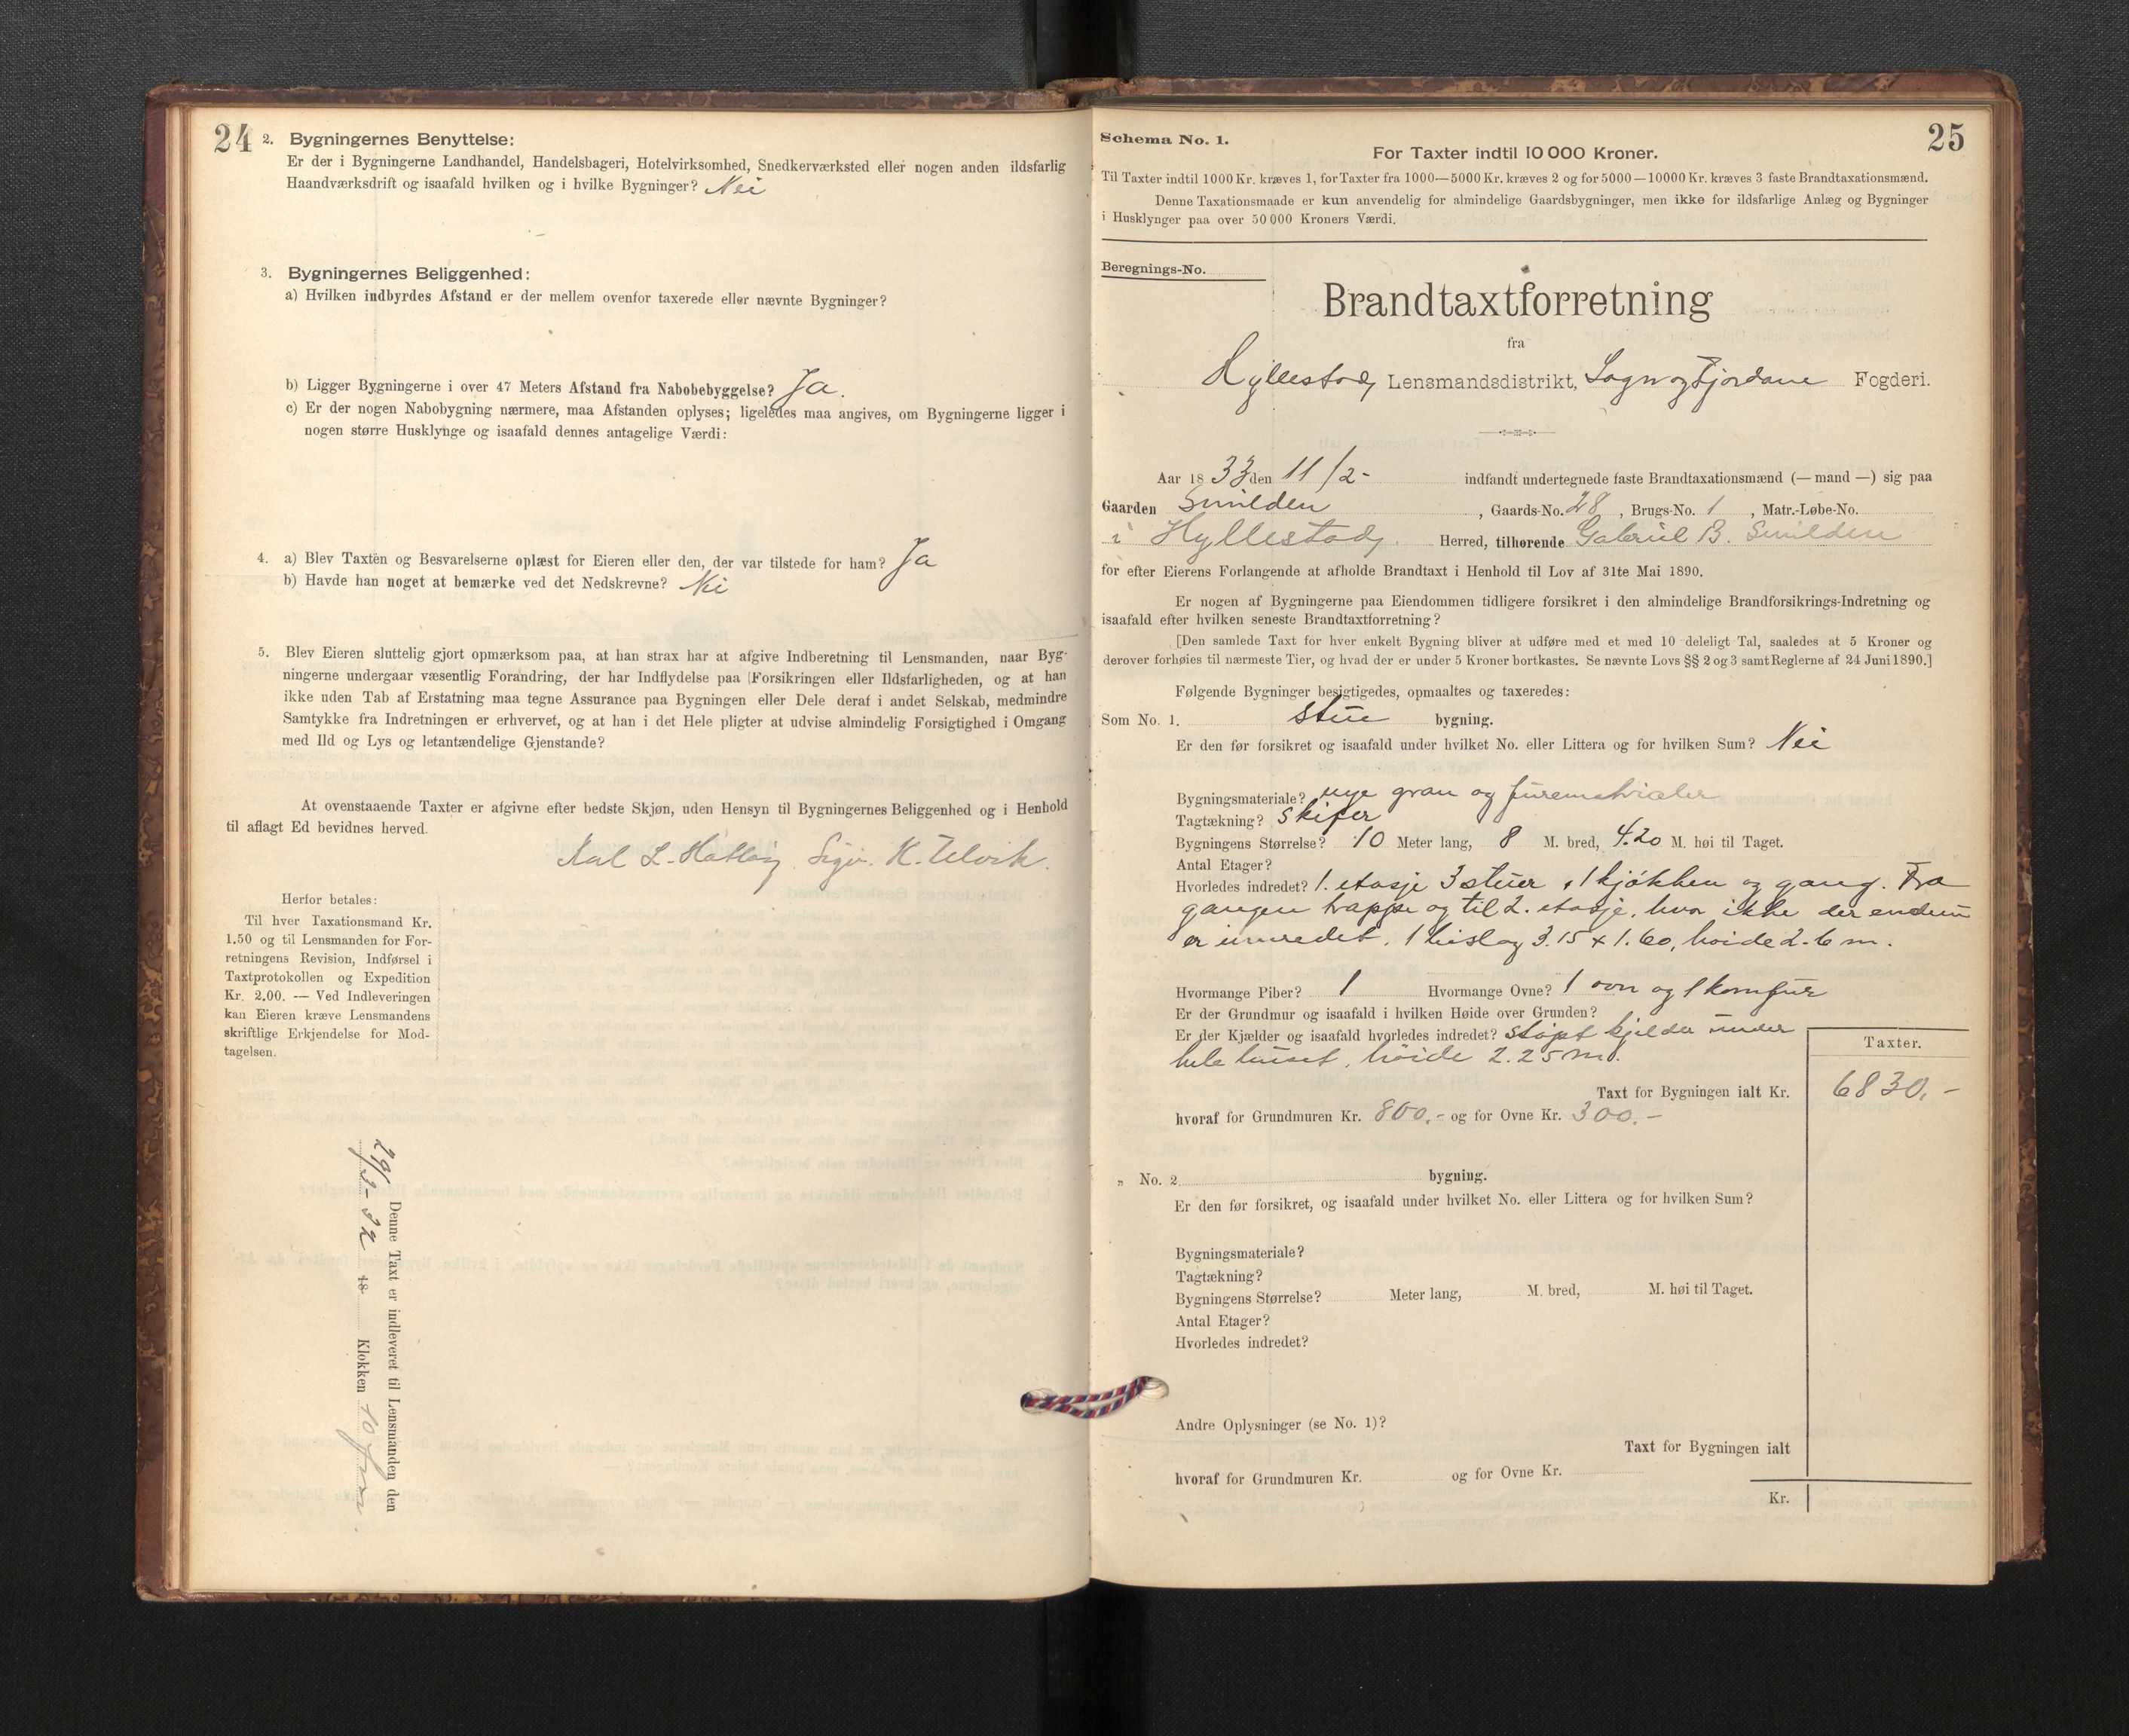 24
2. Bygningernes Benyttelse:
Er der i Bygningerne Landhandel, Handelsbageri, Hotelvirksomhed, Snedkerværksted eller nogen anden ildsfarlig
Haandværksdrift og isaafald hvilken og i hvilke Bygninger? Nei
3. Bygningernes Beliggenhed:
a) Hvilken indbyrdes Afstand er der mellem ovenfor taxerede eller nævnte Bygninger?
b) Ligger Bygningerne i over 47 Meters Afstand fra Nabobebyggelse? Ja.
c) Er der nogen Nabobygning nærmere, maa Afstanden oplyses; ligeledes maa angives, om Bygningerne ligger i
nogen større Husklynge og isaafald dennes antagelige Værdi:
4. a) Blev Taxten og Besvarelserne oplæst for Eieren eller den, der var tilstede for ham? Ja
b) Havde han noget at bemærke ved det Nedskrevne? Nei
5. Blev Eieren sluttelig gjort opmærksom paa, at han strax har at afgive Indberetning til Lensmanden, naar Byg-
ningerne undergaar væsentlig Forandring, der har Indflydelse paa Forsikringen eller Ildsfarligheden, og at han
ikke uden Tab af Erstatning maa tegne Assurance paa Bygningen eller Dele deraf i andet Selskab, medmindre
Samtykke fra Indretningen er erhvervet, og at han i det Hele pligter at udvise almindelig Forsigtighed i Omgang
med Ild og Lys og letantændelige Gjenstande?
At ovenstaaende Taxter er afgivne efter bedste Skjøn, uden Hensyn til Bygningernes Beliggenhed og i Henhold
til aflagt Ed bevidnes herved.
Karl L. Hatløy. Sigv. K.
Herfor betales:
Til hver Taxationsmand Kr.
1.50 og til Lensmanden for For-
retningens Revision, Indførsel i
Taxtprotokollen og Expedition
Kr. 2.00. — Ved Indleveringen
kan Eieren kræve Lensmandens
skriftlige Erkjendelse for Mod-
tagelsen.
Denne Taxt er indleveret til Lensmanden den
29/3-32 18 Klokken 10 fm
25
Schema No. 1.
For Taxter indtil 10 000 Kroner.
Til Taxter indtil 1000 Kr. kræves 1, for Taxter fra 1000—5000 Kr. kræves 2 og for 5000—10000 Kr. kræves 3 faste Brandtaxationsmænd.
Denne Taxationsmaade er kun anvendelig for almindelige Gaardsbygninger, men ikke for ildsfarlige Anlæg og Bygninger
i Husklynger paa over 50 000 Kroners Værdi.
Beregnings-No.
Brandtaxtforretning
fra
Hyllestad Lensmandsdistrikt, Sogn og Fjordane Fogderi.
Aar 18 33 den 11/2- indfandt undertegnede faste Brandtaxationsmænd (— mand —) sig paa
Gaarden Smilden, Gaards-No. 28, Brugs-No. 1, Matr.-Løbe-No.
i Hyllestad. Herred, tilhørende Gabriel B. Smilden
for efter Eierens Forlangende at afholde Brandtaxt i Henhold til Lov af 31te Mai 1890.
Er nogen af Bygningerne paa Eiendommen tidligere forsikret i den almindelige Brandforsikrings-Indretning og
isaafald efter hvilken seneste Brandtaxtforretning?
[Den samlede Taxt for hver enkelt Bygning bliver at udføre med et med 10 deleligt Tal, saaledes at 5 Kroner og
derover forhøies til nærmeste Tier, og hvad der er under 5 Kroner bortkastes. Se nævnte Lovs §§ 2 og 3 samt Reglerne af 24 Juni 1890.]
Følgende Bygninger besigtigedes, opmaaltes og taxeredes:
Som No. 1. stue bygning.
Er den før forsikret og isaafald under hvilket No. eller Littera og for hvilken Sum? Nei
Bygningsmateriale? nye gran og furematrialer
Tagtækning? Skifer
Bygningens Størrelse? 10 Meter lang, 8 M. bred, 4.20 M. høi til Taget.
Antal Etager?
Hvorledes indredet? 1. etasje 3 stuer, 1 kjøkken og gang. Fra
gangen trappe og til 2. etasje, hvor ikke der endnu
er innredet. 1 bislag 3.15 x 1.60, høide 2.6 m.
Hvormange Piber? 1 Hvormange Ovne? 1 ovn og 1 komfur
Er der Grundmur og isaafald i hvilken Høide over Grunden?
Er der Kjælder og isaafald hvorledes indredet? støpt kjelder under
hele huset, høide 2.25 m.
Taxter.
Taxt for Bygningen ialt Kr. 6830,-
hvoraf for Grundmuren Kr. 800,- og for Ovne Kr. 300,-
„ No. 2 bygning.
Er den før forsikret, og isaafald under hvilket No. eller Littera og for hvilken Sum?
Bygningsmateriale?
Tagtækning?
Bygningens Størrelse? Meter lang, M. bred, M. høi til Taget.
Antal Etager?
Hvorledes indredet?
Andre Oplysninger (se No. 1)?
Taxt for Bygningen ialt
hvoraf for Grundmuren Kr. og for Ovne Kr.
Kr.